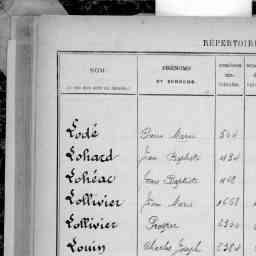 RÉPERTOIRE
NOM PRÉNOMS
ET SURNOMS
Lodé Pierre Marie 504
Lohard Jean Baptiste 494
Lohéac Jean Baptiste
Lollivier Jean Marie 1668
Lollivier Prosper 2300
Louin Charles Joseph 2384